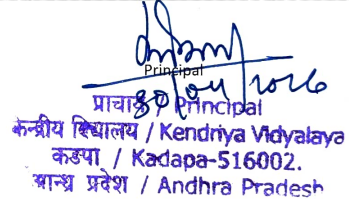 Principal
30/04/2026
प्राचार्य / Principal
केन्द्रीय विद्यालय / Kendriya Vidyalaya
कडपा / Kadapa-516002.
आन्ध्र प्रदेश / Andhra Pradesh